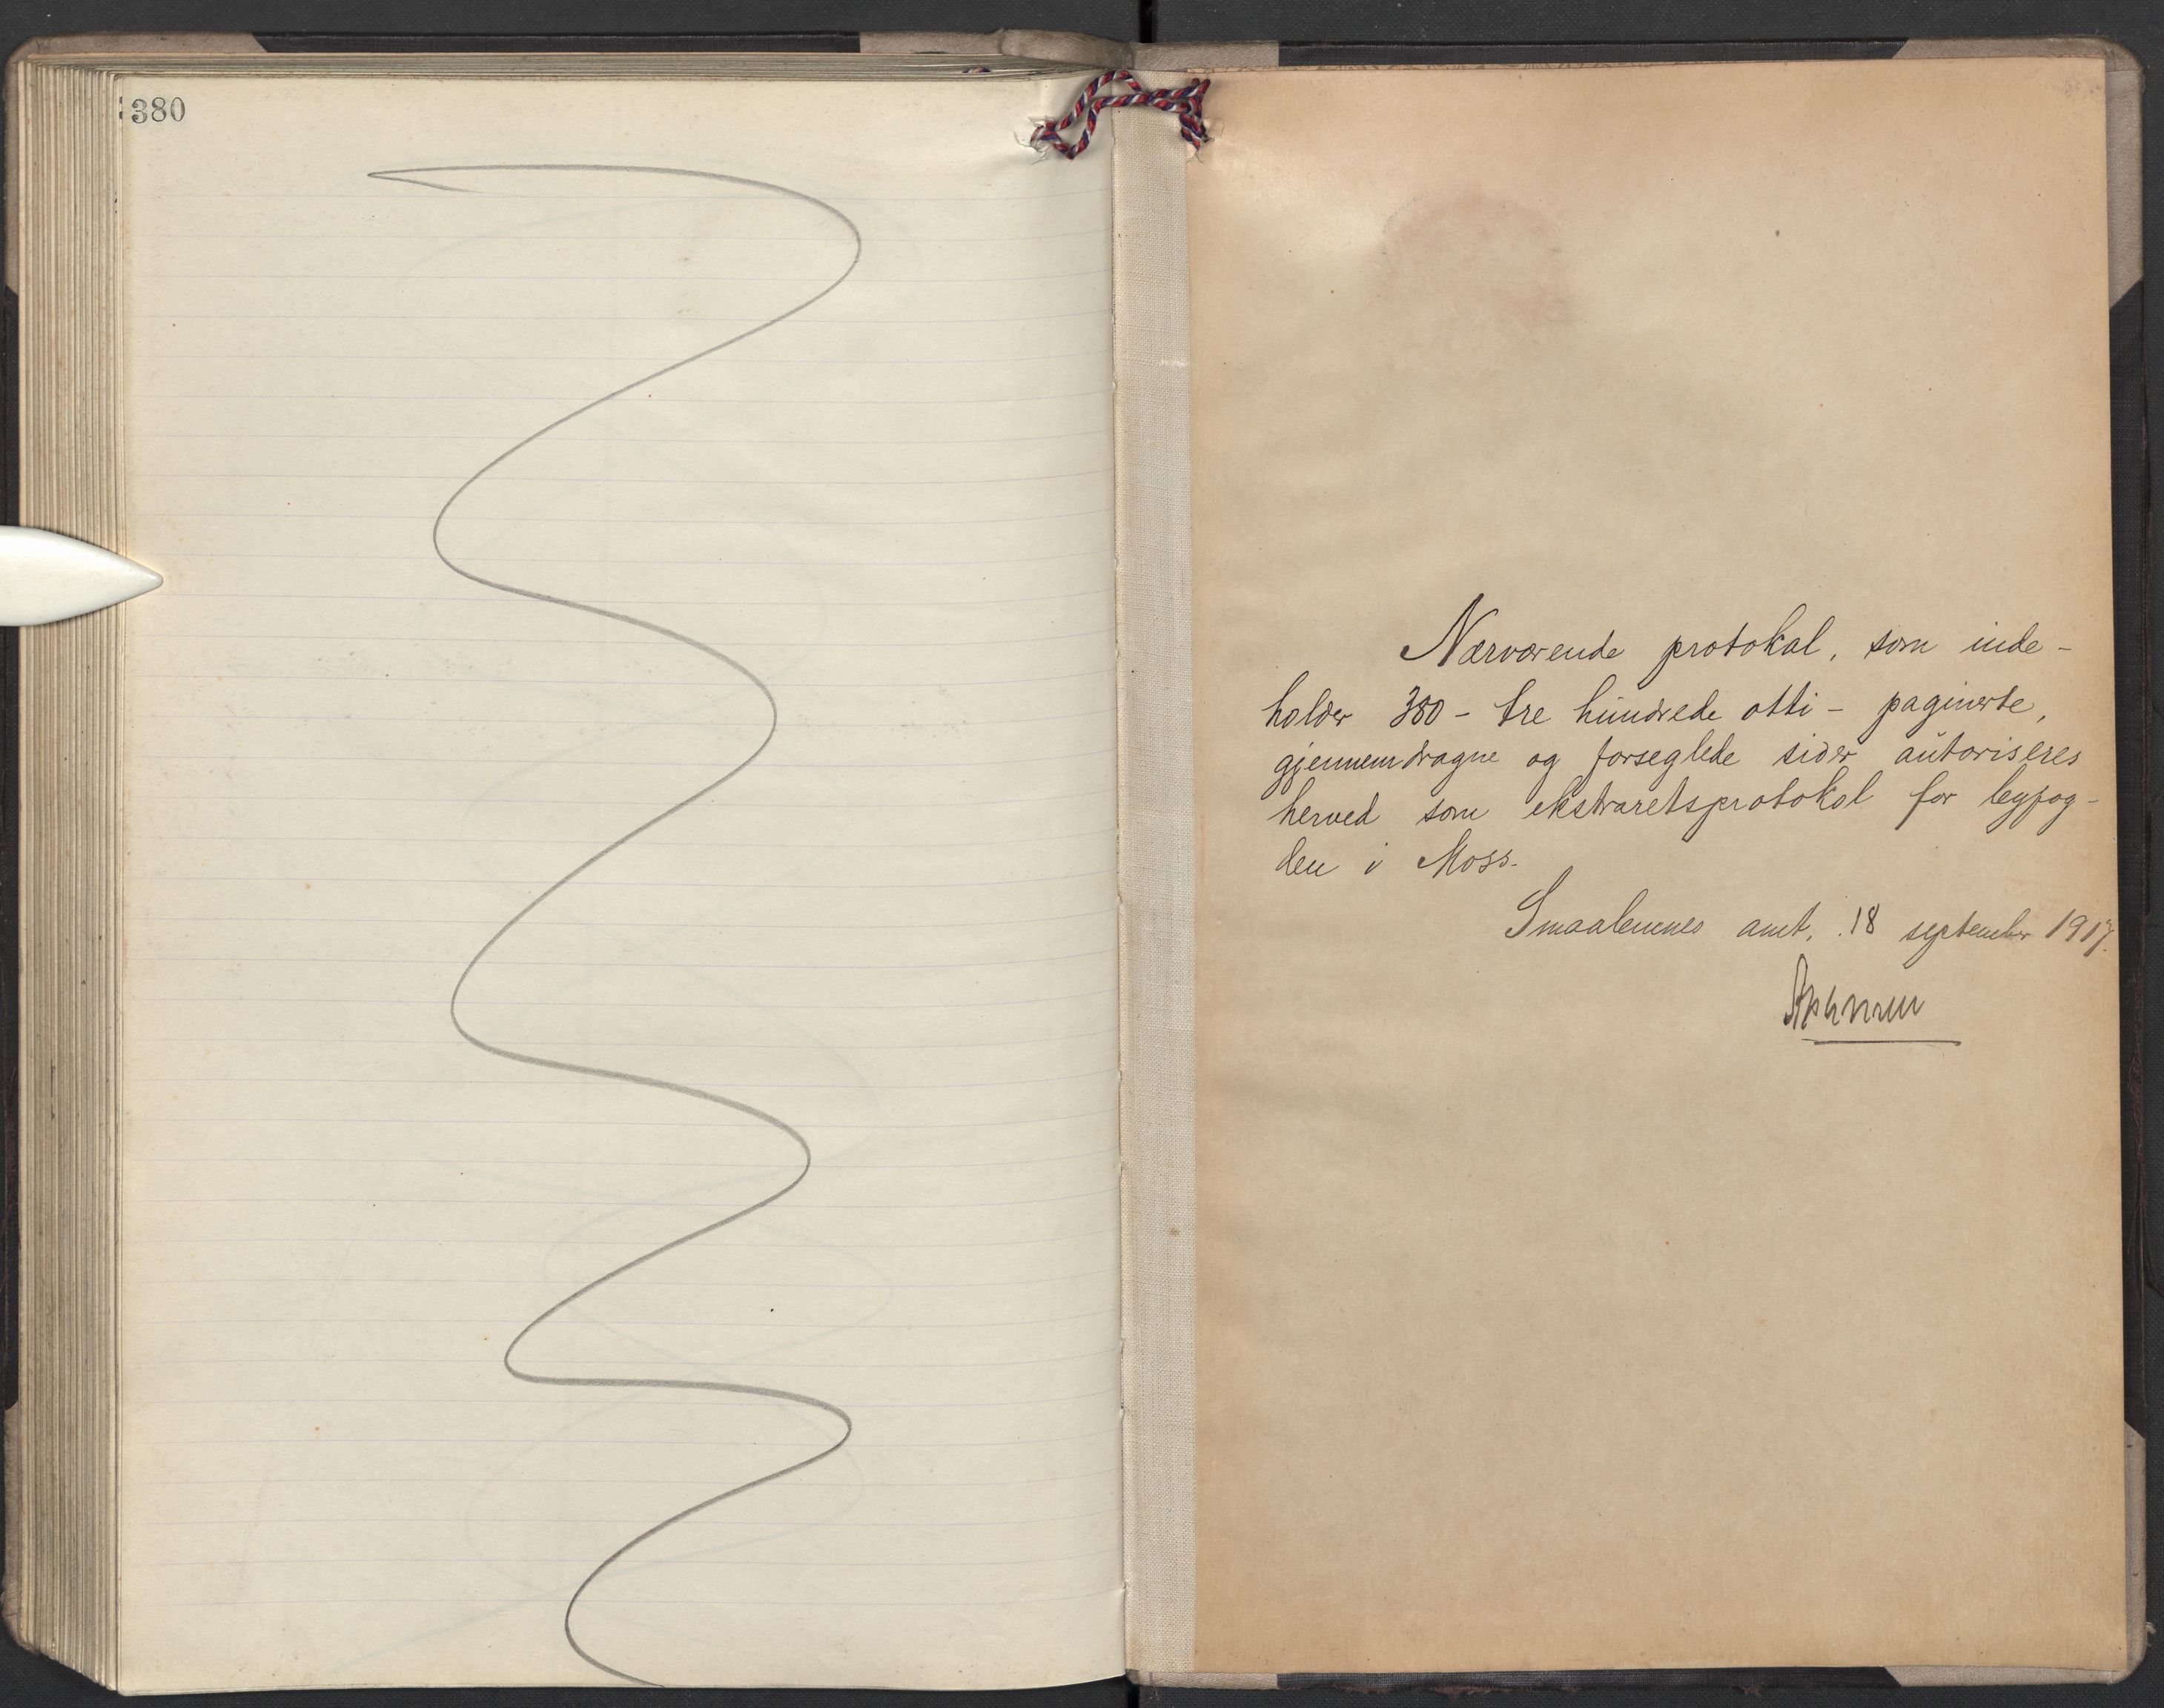 380
Nærværende protokol, som inde-
holder 380 - tre hundrede otti - paginerte,
gjennemdragne og forseglede sider autoriseres
herved som ekstraretsprotokol for byfog-
den i Moss.
Smaalenenes amt, 18 september 1917.